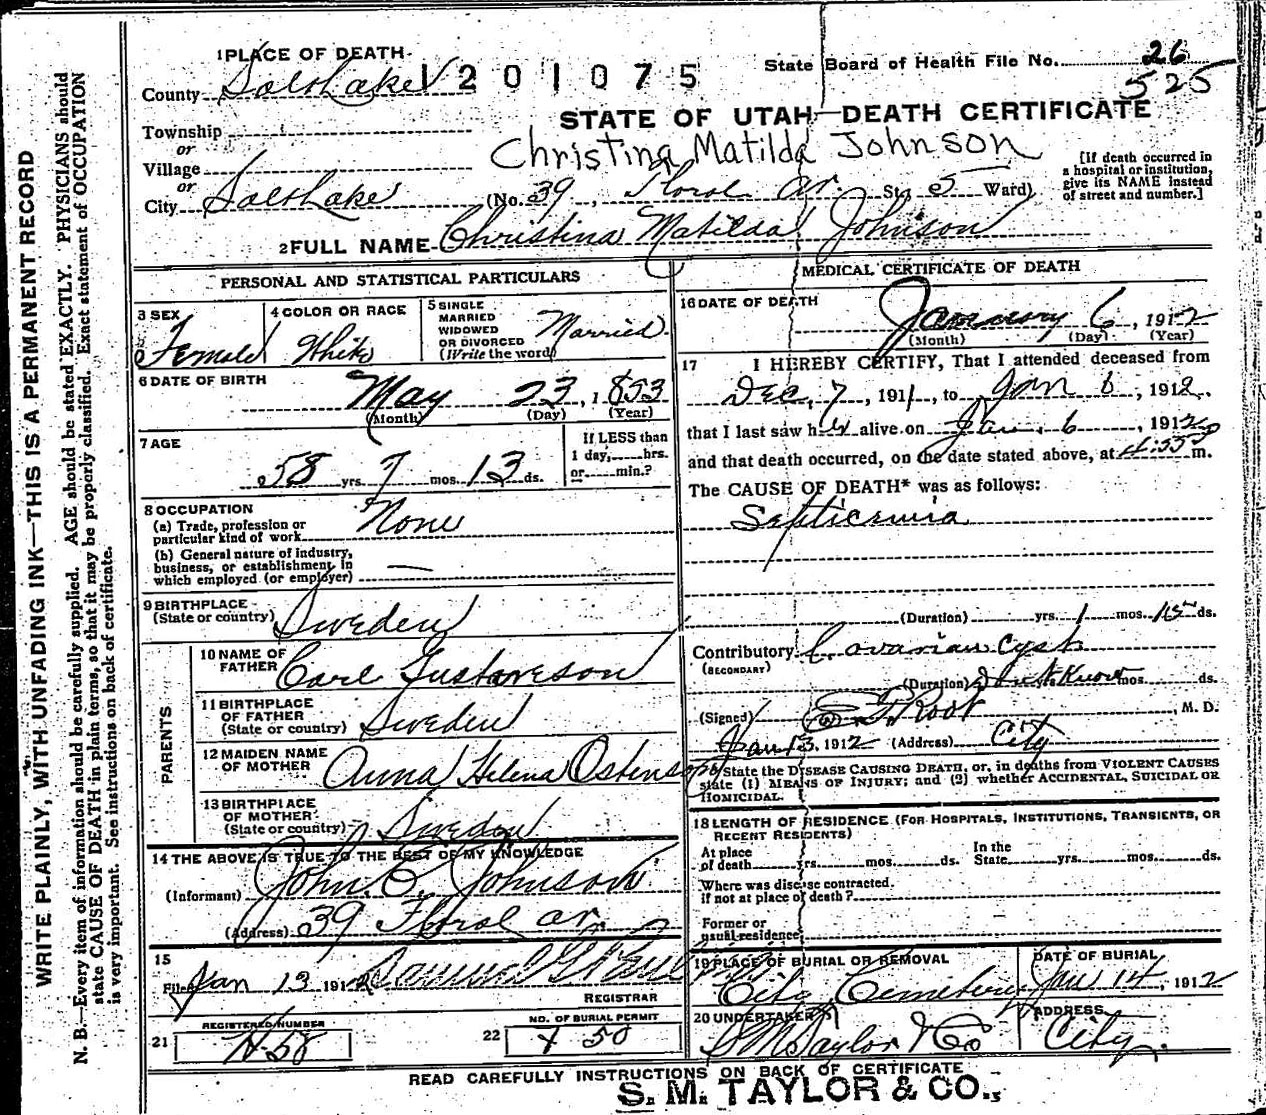 WRITE PLAINLY, WITH UNFADING INK—THIS IS A PERMANENT RECORD
N. B.—Every item of information should be carefully supplied. AGE should be stated EXACTLY. PHYSICIANS should
state CAUSE OF DEATH in plain terms, so that it may be properly classified. Exact statement of OCCUPATION
is very important. See instructions on back of certificate.
1 PLACE OF DEATH
County Salt Lake
1201075
State Board of Health File No. 26
525
STATE OF UTAH—DEATH CERTIFICATE
Township
or
Village
or
City Salt Lake
Christina Matilda Johnson
(No. 39, Floral av. St. 5 Ward)
[If death occurred in
a hospital or institution,
give its NAME instead
of street and number.]
2 FULL NAME Christina Matilda Johnson
PERSONAL AND STATISTICAL PARTICULARS
3 SEX
Female
4 COLOR OR RACE
White
5 SINGLE
MARRIED
WIDOWED
OR DIVORCED
(Write the word)
Married
6 DATE OF BIRTH
May 23, 1853
(Month) (Day) (Year)
7 AGE
58 yrs. 7 mos. 13 ds.
If LESS than
1 day, hrs.
or min.?
8 OCCUPATION
(a) Trade, profession or
particular kind of work None
(b) General nature of industry,
business, or establishment in
which employed (or employer) —
9 BIRTHPLACE
(State or country) Sweden
PARENTS
10 NAME OF
FATHER Carl Gustaveson
11 BIRTHPLACE
OF FATHER
(State or country) Sweden
12 MAIDEN NAME
OF MOTHER Anna Helena Ostenson
13 BIRTHPLACE
OF MOTHER
(State or country) Sweden
14 THE ABOVE IS TRUE TO THE BEST OF MY KNOWLEDGE
(Informant) John E. Johnson
(Address) 39 Floral av.
15
Filed Jan 13 1912 Samuel G.
REGISTRAR
21 REGISTERED NUMBER
H-58
22 NO. OF BURIAL PERMIT
58
MEDICAL CERTIFICATE OF DEATH
16 DATE OF DEATH
January 6, 1912
(Month) (Day) (Year)
17 I HEREBY CERTIFY, That I attended deceased from
Dec, 7, 1911, to Jan 6, 1912.
that I last saw her alive on Jan. 6 1912
and that death occurred, on the date stated above, at 4:55 P m.
The CAUSE OF DEATH* was as follows:
Septicemia
(Duration) yrs. 1 mos. 15 ds.
Contributory ovarian cyst
(SECONDARY)
(Duration) Don't Know mos. ds.
(Signed) E. F. Root, M. D.
Jan 13, 1912 (Address) City
State the DISEASE CAUSING DEATH, or, in deaths from VIOLENT CAUSES
state (1) MEANS OF INJURY; and (2) whether ACCIDENTAL, SUICIDAL OR
HOMICIDAL.
18 LENGTH OF RESIDENCE (FOR HOSPITALS, INSTITUTIONS, TRANSIENTS, OR
RECENT RESIDENTS)
At place
of death yrs. mos. ds.
In the
State yrs. mos. ds.
Where was disease contracted.
if not at place of death?
Former or
usual residence
19 PLACE OF BURIAL OR REMOVAL
City Cemetery
DATE OF BURIAL
Jan 14, 1912
20 UNDERTAKER
S M Taylor & Co
ADDRESS
City.
READ CAREFULLY INSTRUCTIONS ON BACK OF CERTIFICATE
S. M. TAYLOR & CO.,